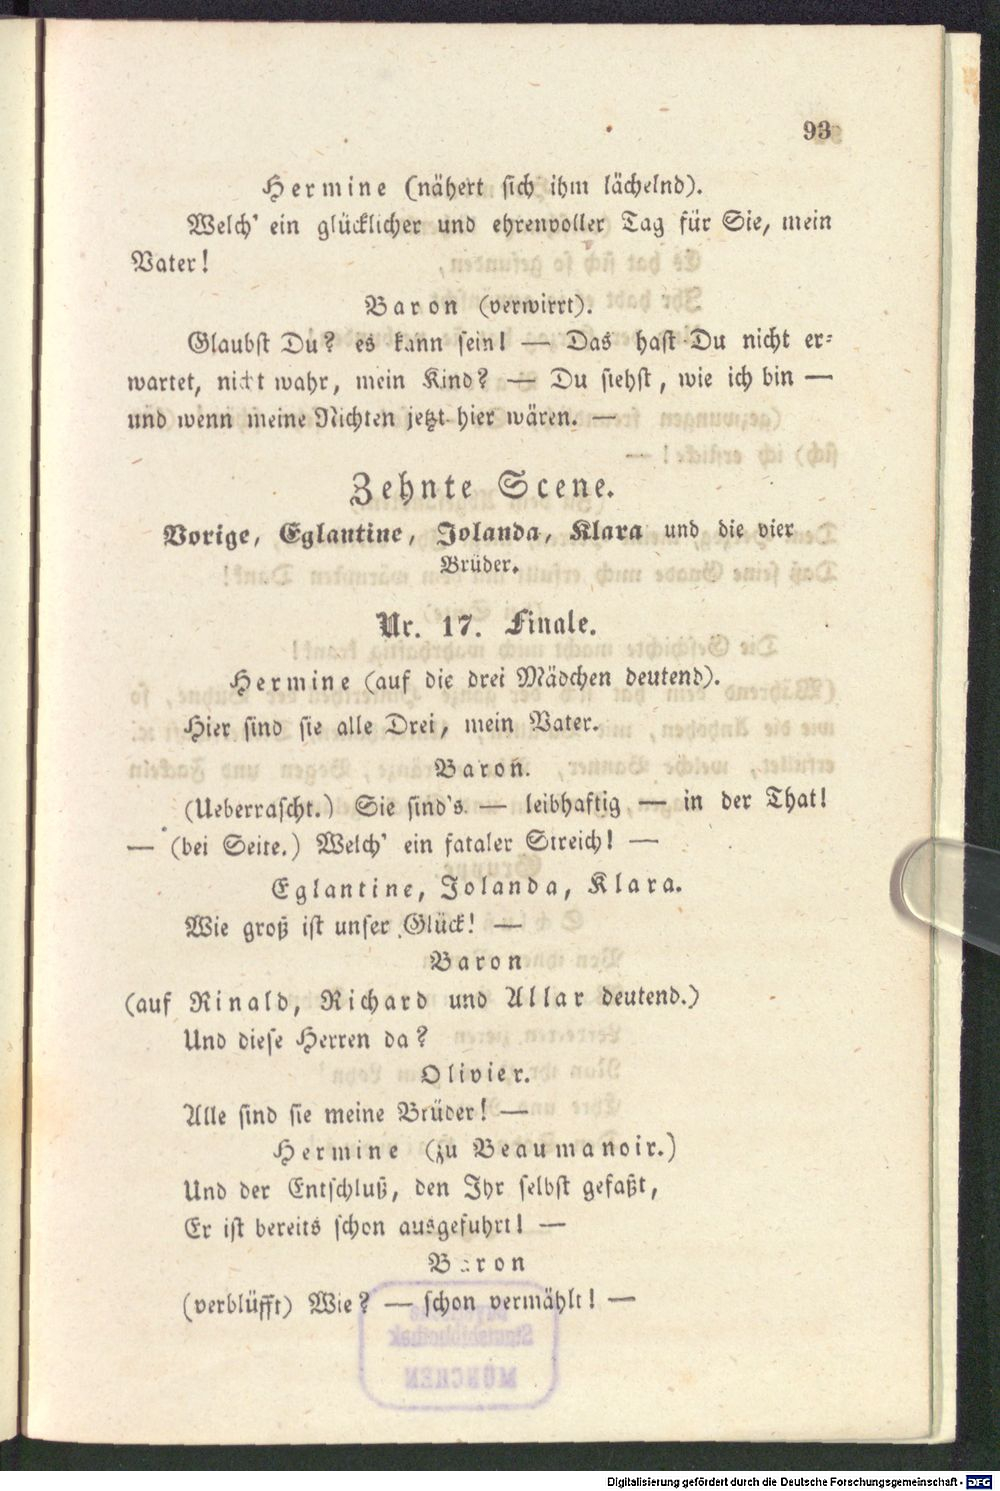 93
Hermine (nähert sich ihm lächelnd).
Welch' ein glücklicher und ehrenvoller Tag für Sie, mein
Vater!
Baron (verwirrt).
Glaubst Du? es kann sein! — Das hast Du nicht er-
wartet, nicht wahr, mein Kind? — Du siehst, wie ich bin —
und wenn meine Nichten jetzt hier wären. —
Zehnte Scene.
Vorige, Eglantine, Jolanda, Klara und die vier
Brüder.
Nr. 17. Finale.
Hermine (auf die drei Mädchen deutend).
Hier sind sie alle Drei, mein Vater.
Baron.
(Ueberrascht.) Sie sind's — leibhaftig — in der That!
— (bei Seite.) Welch' ein fataler Streich! —
Eglantine, Jolanda, Klara.
Wie groß ist unser Glück! —
Baron
(auf Rinald, Richard und Allar deutend.)
Und diese Herren da?
Olivier.
Alle sind sie meine Brüder! —
Hermine (zu Beaumanoir.)
Und der Entschluß, den Ihr selbst gefaßt,
Er ist bereits schon ausgeführt! —
Baron
(verblüfft) Wie? — schon vermählt! —
Staatsbibliothek
MÜNCHEN
Digitalisierung gefördert durch die Deutsche Forschungsgemeinschaft - DFG